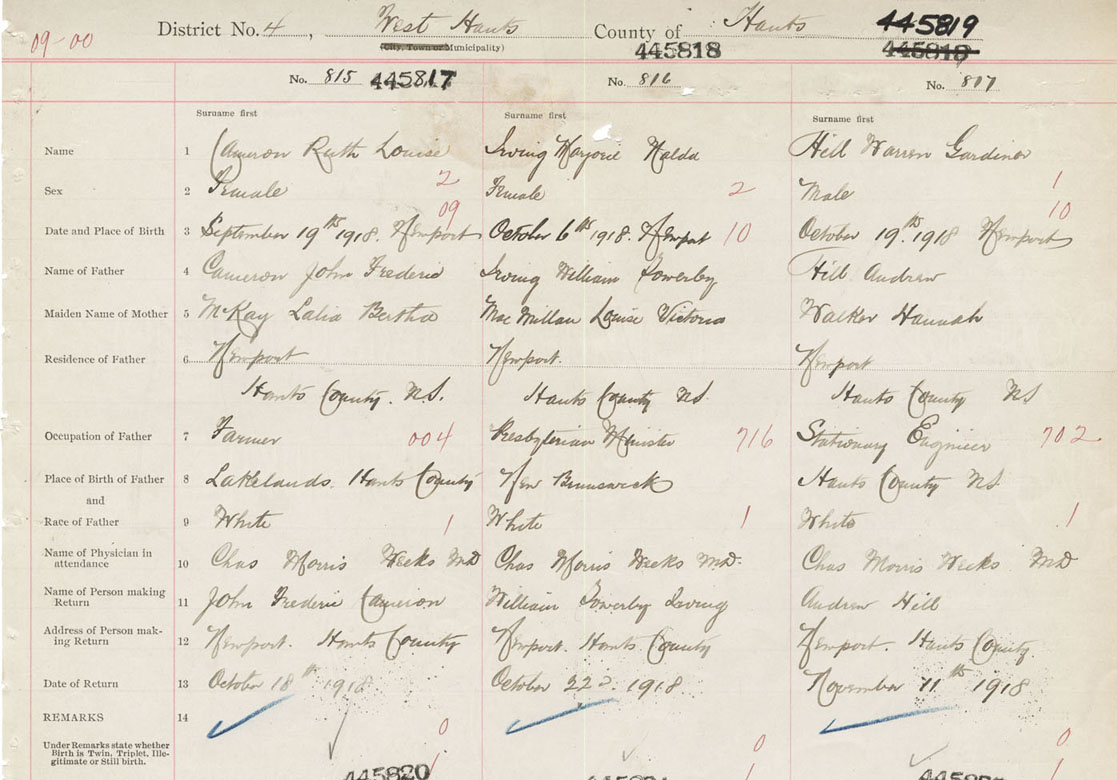 District No. 4, West Hants County of Hants 445819
09-00 (City, Town or Municipality) 445818 445818
No. 815 445817 No. 816 No. 817
Surname first Surname first Surname first
Name 1 Cameron Ruth Louise Irving Marjorie Nalda Hill Warren Gardiner
Sex 2 Female 2 Female 2 Male 1
09 10
Date and Place of Birth 3 September 19th 1918. Newport October 6th 1918. Newport 10 October 19. 1918 Newport
Name of Father 4 Cameron John Frederic Irving William Sowerby Hill Andrew
Maiden Name of Mother 5 McKay Lalia Bertha MacMillan Louise Victoria Walker Hannah
Residence of Father 6 Newport Newport. Newport
Hants County. N.S. Hants County NS Hants County NS
Occupation of Father 7 Farmer 004 Presbyterian Minister 716 Stationary Engineer 702
Place of Birth of Father 8 Lakelands. Hants County New Brunswick Hants County NS
and
Race of Father 9 White 1 White 1 White 1
Name of Physician in
attendance 10 Chas Morris Weeks MD Chas Morris Weeks MD. Chas Morris Weeks MD
Name of Person making
Return 11 John Frederic Cameron William Sowerby Irving Andrew Hill
Address of Person mak-
ing Return 12 Newport. Hants County Newport. Hants County Newport. Hants County.
Date of Return 13 October 18th 1918 October 22d 1918 November 11th 1918
REMARKS 14
0 0 0
Under Remarks state whether
Birth is Twin, Triplet, Ille-
gitimate or Still birth.
1 1 1
445820